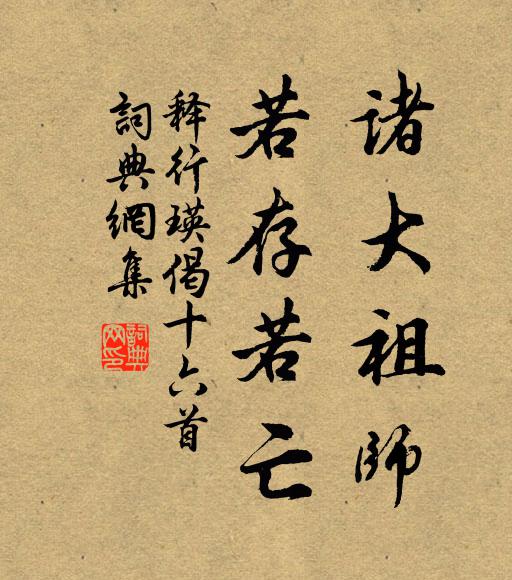 諸大祖師
若存若亡
释行瑛偈十六首
詞典網集
詞典网印